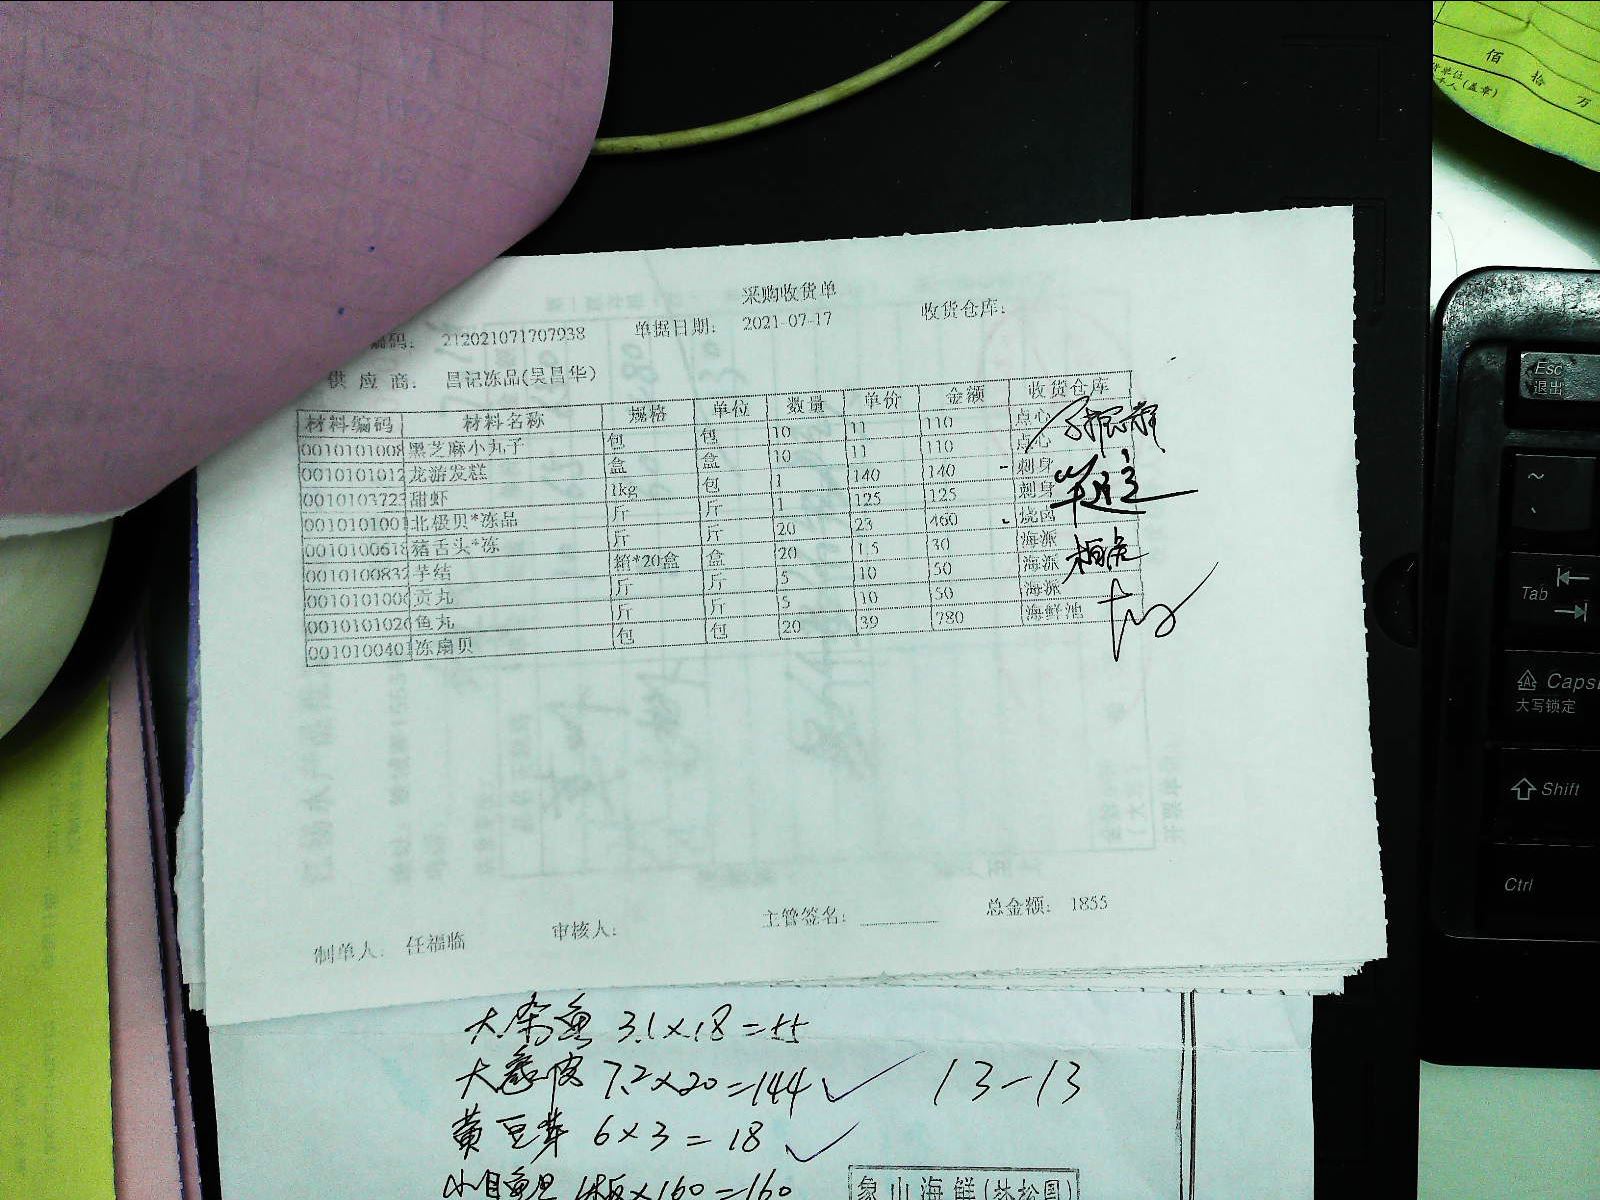 佰 拾 万
人(盖章)
采购收货单
编码: 212021071707938 单据日期: 2021-07-17 收货仓库:
供 应 商: 昌记冻品(吴昌华)
材料编码 材料名称 规格 单位 数量 单价 金额 收货仓库
0010101008 黑芝麻小丸子 包 包 10 11 110 点心
0010101012 龙游发糕 盒 盒 10 11 110 点心
0010103723 甜虾 1kg 包 1 140 140 刺身
0010101001 北极贝*冻品 斤 斤 1 125 125 刺身
0010100618 猪舌头*冻 斤 斤 20 23 460 烧卤
0010100832 芋结 箱*20盒 盒 20 1.5 30 海派
0010101006 贡丸 斤 斤 5 10 50 海派
0010101026 鱼丸 斤 斤 5 10 50 海派
0010100401 冻扇贝 包 包 20 39 780 海鲜池
制单人: 任福临 审核人: 主管签名: 总金额: 1855
大杂鱼 3.1×18=55
大卷皮 7.2×20=144 13-13
黄豆芽 6×3=18
×160=160
象山海鲜(林松国)
Esc
退出
~
Tab
Caps
大写锁定
Shift
Ctrl